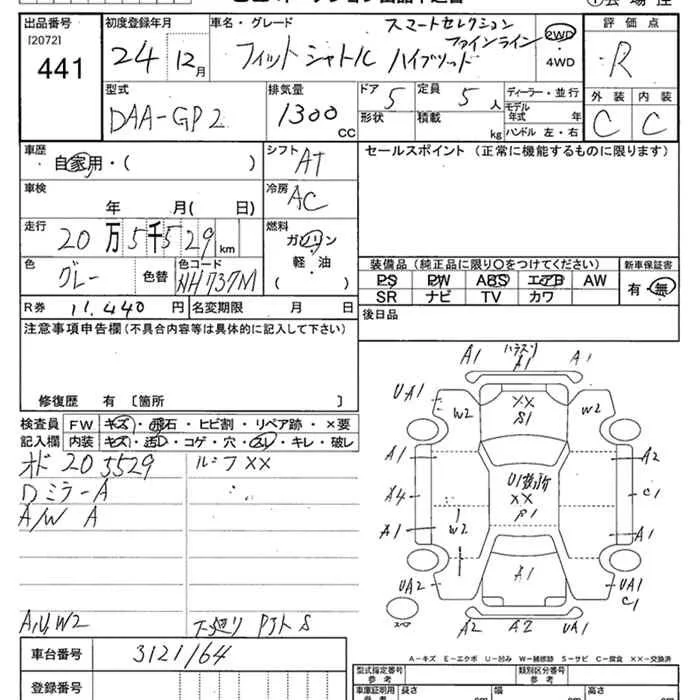 出品番号 初度登録年月 車名・グレード スマートセレクション 評価点
[2072] ファインライン 2WD
441 24 12月 フィットシャトル ハイブリッド 4WD R
型式 排気量 ドア 定員 ディーラー・並行 外装 内装
DAA-GP2 1300 CC 5 5人 モデル年式 年 C C
形状 積載 kg ハンドル 左・右
車歴 シフト AT セールスポイント (正常に機能するものに限ります)
自家用・( )
車検 冷房 AC
年 月( 日)
走行 燃料
20万5千529km ガソリン
軽・油
( )
色 色替 色コード 装備品(純正品に限り○をつけてください) 新車保証書
グレー NH737M PS PW ABS エアB AW 有・無
SR ナビ TV カワ
R券 11,440円 名変期限 月 日 後日品
注意事項申告欄(不具合内容等は具体的に記入して下さい)
修復歴 有 [箇所 ]
検査員 FW キズ・飛石・ヒビ割・リペア跡・×要
記入欄 内装 キズ・汚レ・コゲ・穴・スレ・キレ・破レ
オド 205529 ルーフXX
Dミラー A
A/W A
A,U,W2 下廻り P3ト S
車台番号 3121164
登録番号
A1 ハラスリ A1 A1
UA1 W2 XX S1 W2
A1 A2
A4 XX C1
A1 W2 A1
UA2 A1 UA1 C1
スペア A2 A2 UA1
A-キズ E-エクボ U-凹み W-補修跡 S-サビ C-腐食 XX-交換済
型式指定番号 参考 類別区分番号 参考
車庫証明用 参考 長さ cm 幅 cm 高さ cm